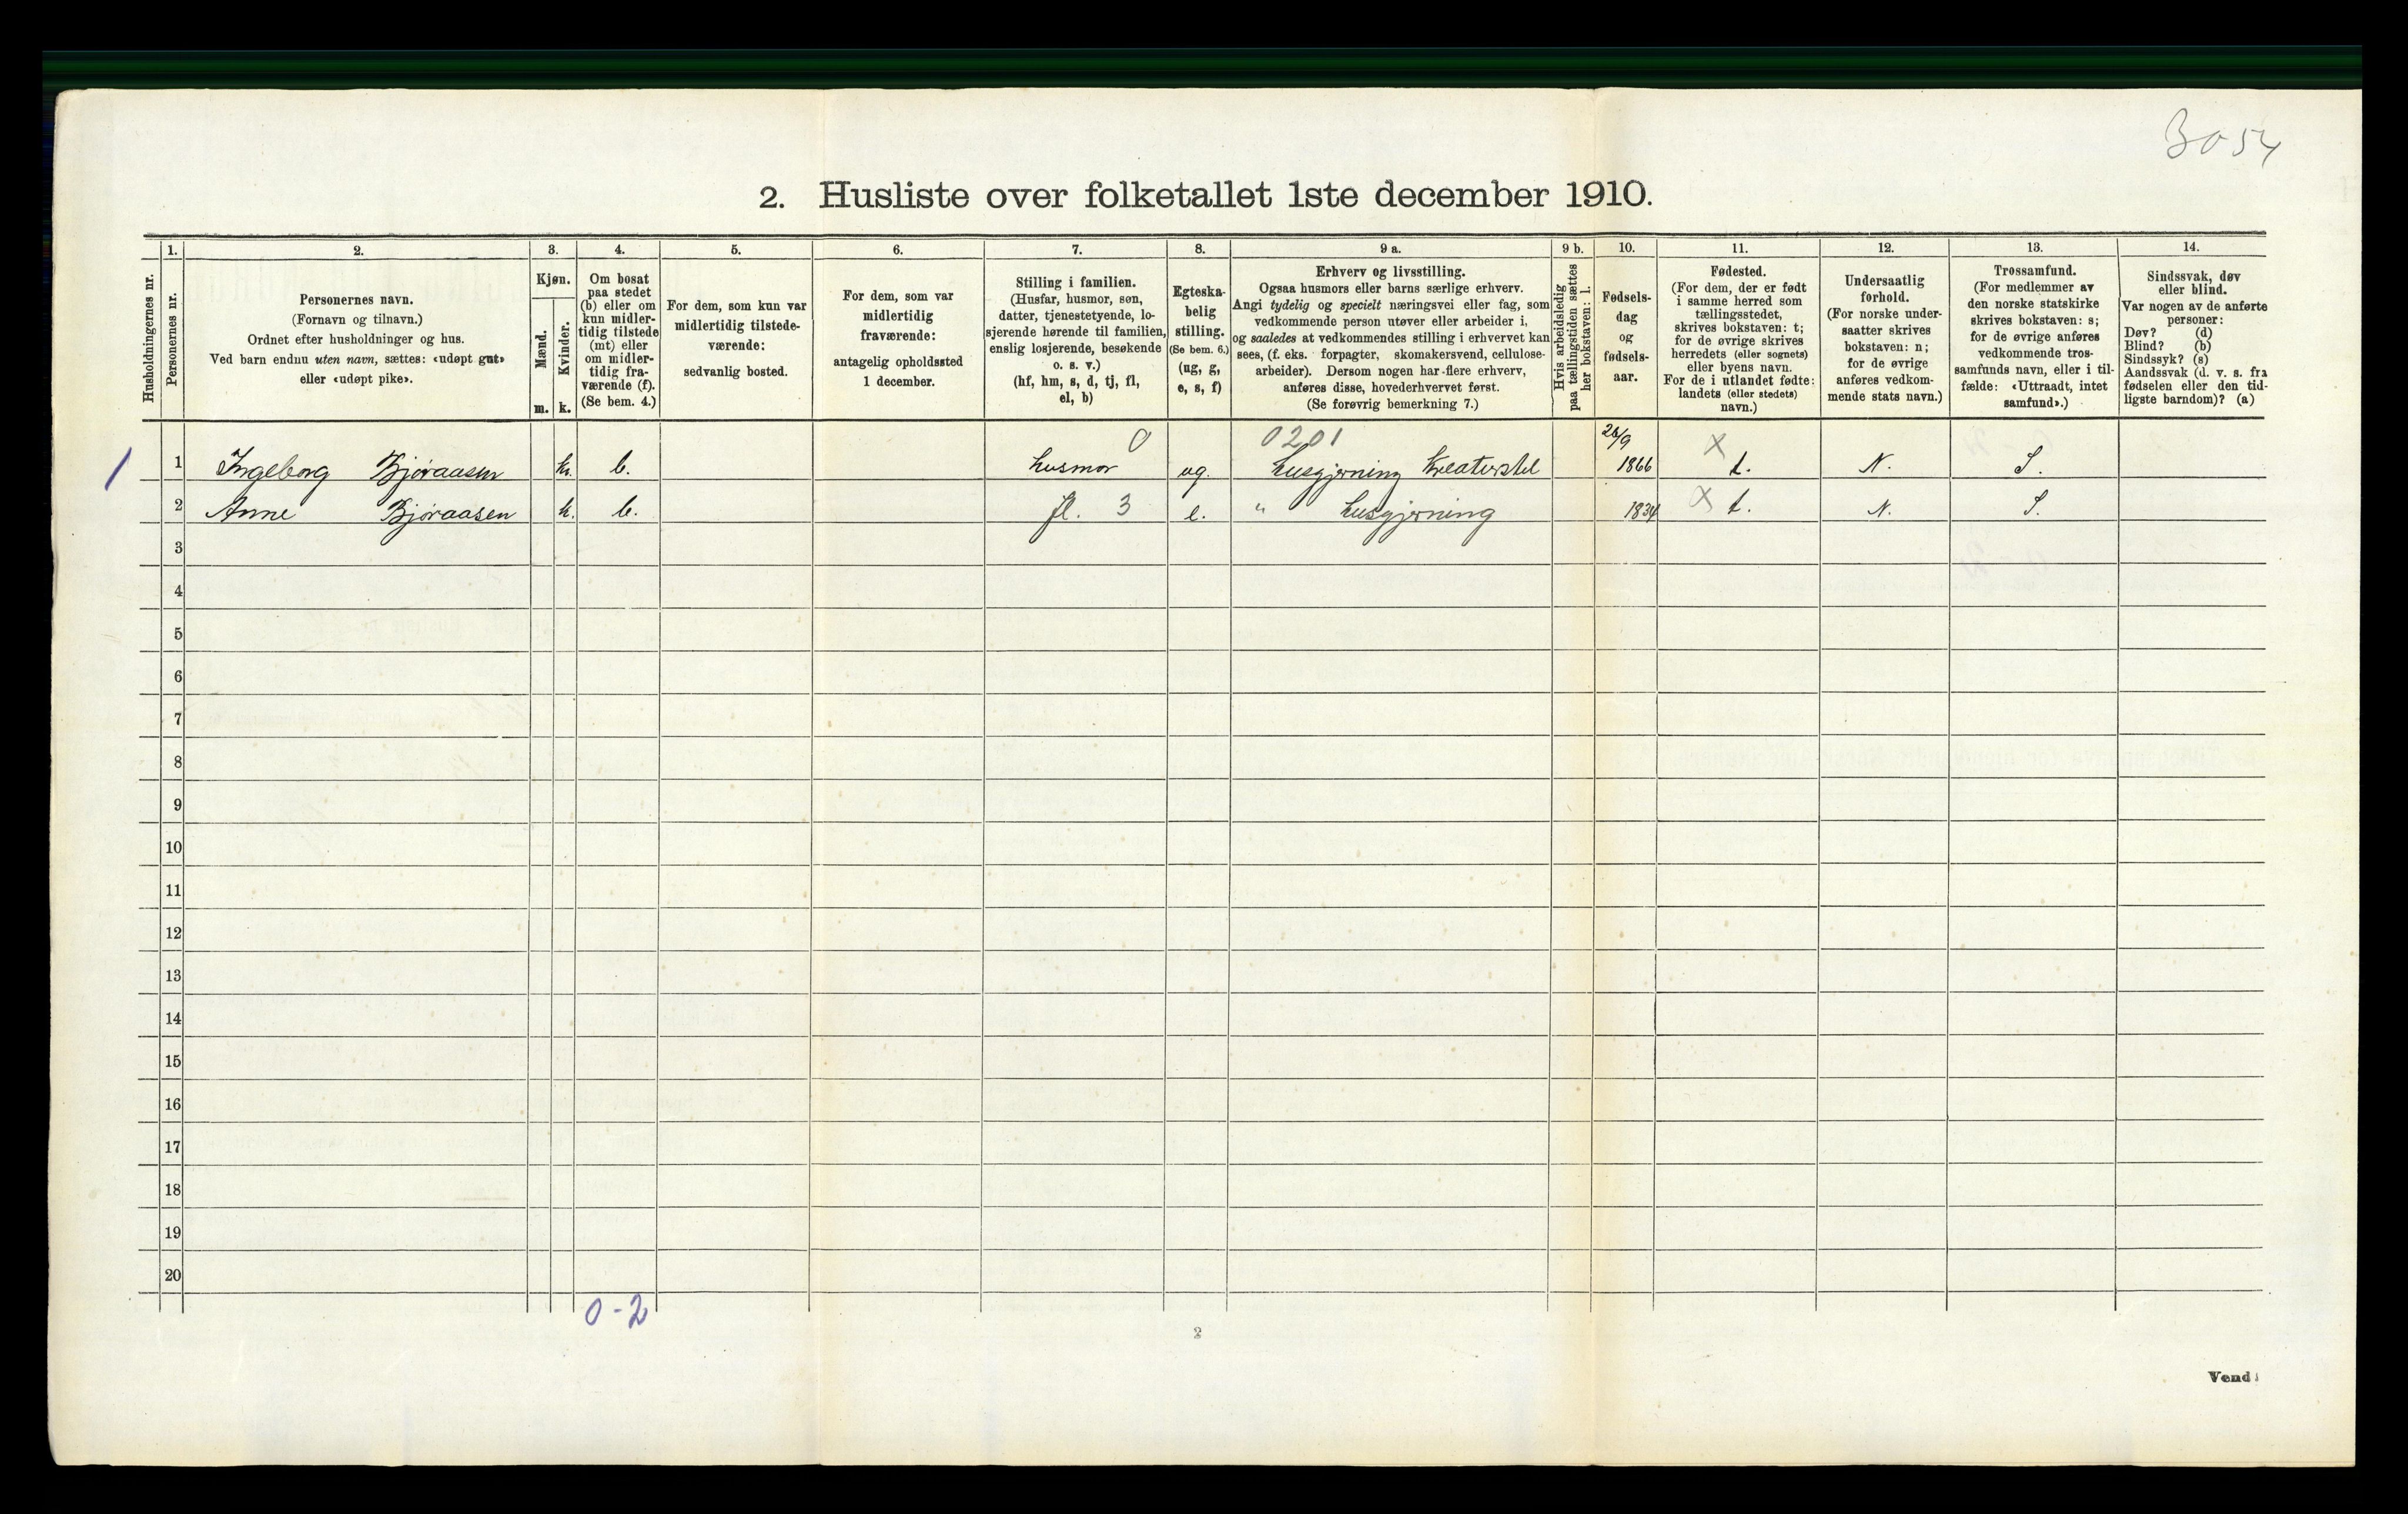 3054
2. Husliste over folketallet 1ste december 1910.
Husholdningernes nr.
1.
Personernes nr.
2.
Personernes navn.
(Fornavn og tilnavn.)
Ordnet efter husholdninger og hus.
Ved barn endnu uten navn, sættes: «udøpt gut»
eller «udøpt pike».
3.
Kjøn.
Mænd.
Kvinder.
m. k.
4.
Om bosat
paa stedet
(b) eller om
kun midler-
tidig tilstede
(mt) eller
om midler-
tidig fra-
værende (f).
(Se bem. 4.)
5.
For dem, som kun var
midlertidig tilstede-
værende:
sedvanlig bosted.
6.
For dem, som var
midlertidig
fraværende:
antagelig opholdssted
1 december.
7.
Stilling i familien.
(Husfar, husmor, søn,
datter, tjenestetyende, lo-
sjerende hørende til familien,
enslig losjerende, besøkende
o. s. v.)
(hf, hm, s, d, tj, fl,
el, b)
8.
Egteska-
belig
stilling.
(Se bem. 6.)
(ug, g,
e, s, f)
9 a.
Erhverv og livsstilling.
Ogsaa husmors eller barns særlige erhverv.
Angi tydelig og specielt næringsvei eller fag, som
vedkommende person utøver eller arbeider i,
og saaledes at vedkommendes stilling i erhvervet kan
sees, (f. eks. forpagter, skomakersvend, cellulose-
arbeider). Dersom nogen har flere erhverv,
anføres disse, hovederhvervet først.
(Se forøvrig bemerkning 7.)
9 b.
Hvis arbeidsledig
paa tællingstiden sættes
her bokstaven: l.
10.
Fødsels-
dag
og
fødsels-
aar.
11.
Fødested.
(For dem, der er født
i samme herred som
tællingsstedet,
skrives bokstaven: t;
for de øvrige skrives
herredets (eller sognets)
eller byens navn.
For de i utlandet fødte:
landets (eller stedets)
navn.)
12.
Undersaatlig
forhold.
(For norske under-
saatter skrives
bokstaven: n;
for de øvrige
anføres vedkom-
mende stats navn.)
13.
Trossamfund.
(For medlemmer av
den norske statskirke
skrives bokstaven: s;
for de øvrige anføres
vedkommende tros-
samfunds navn, eller i til-
fælde: «Uttraadt, intet
samfund».)
14.
Sindssvak, døv
eller blind.
Var nogen av de anførte
personer:
Døv? (d)
Blind? (b)
Sindssyk? (s)
Aandssvak (d. v. s. fra
fødselen eller den tid-
ligste barndom)? (a)
0 0201 26/9 X
1 1 Ingeborg Bjøraasen k. b. husmor ug. Husgjerning Kreaturstel 1866 t. N. S.
2 Anne Bjøraasen k. b. fl. 3 e. " husgjerning 1834 X t. N. S.
3
4
5
6
7
8
9
10
11
12
13
14
15
16
17
18
19
20
0-2
2
Vend!